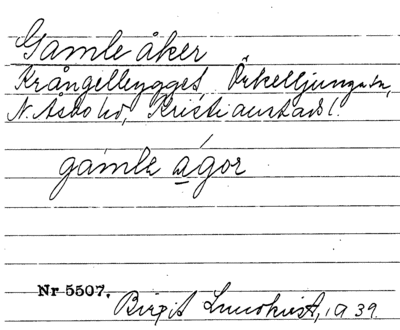 Gamle åker
Krångelbygget, Örkelljunga sn,
N. Åsbo hd, Kristianstads l.
gámle ágor
Nr 5507.
Birgit Lundkvist, 1939.